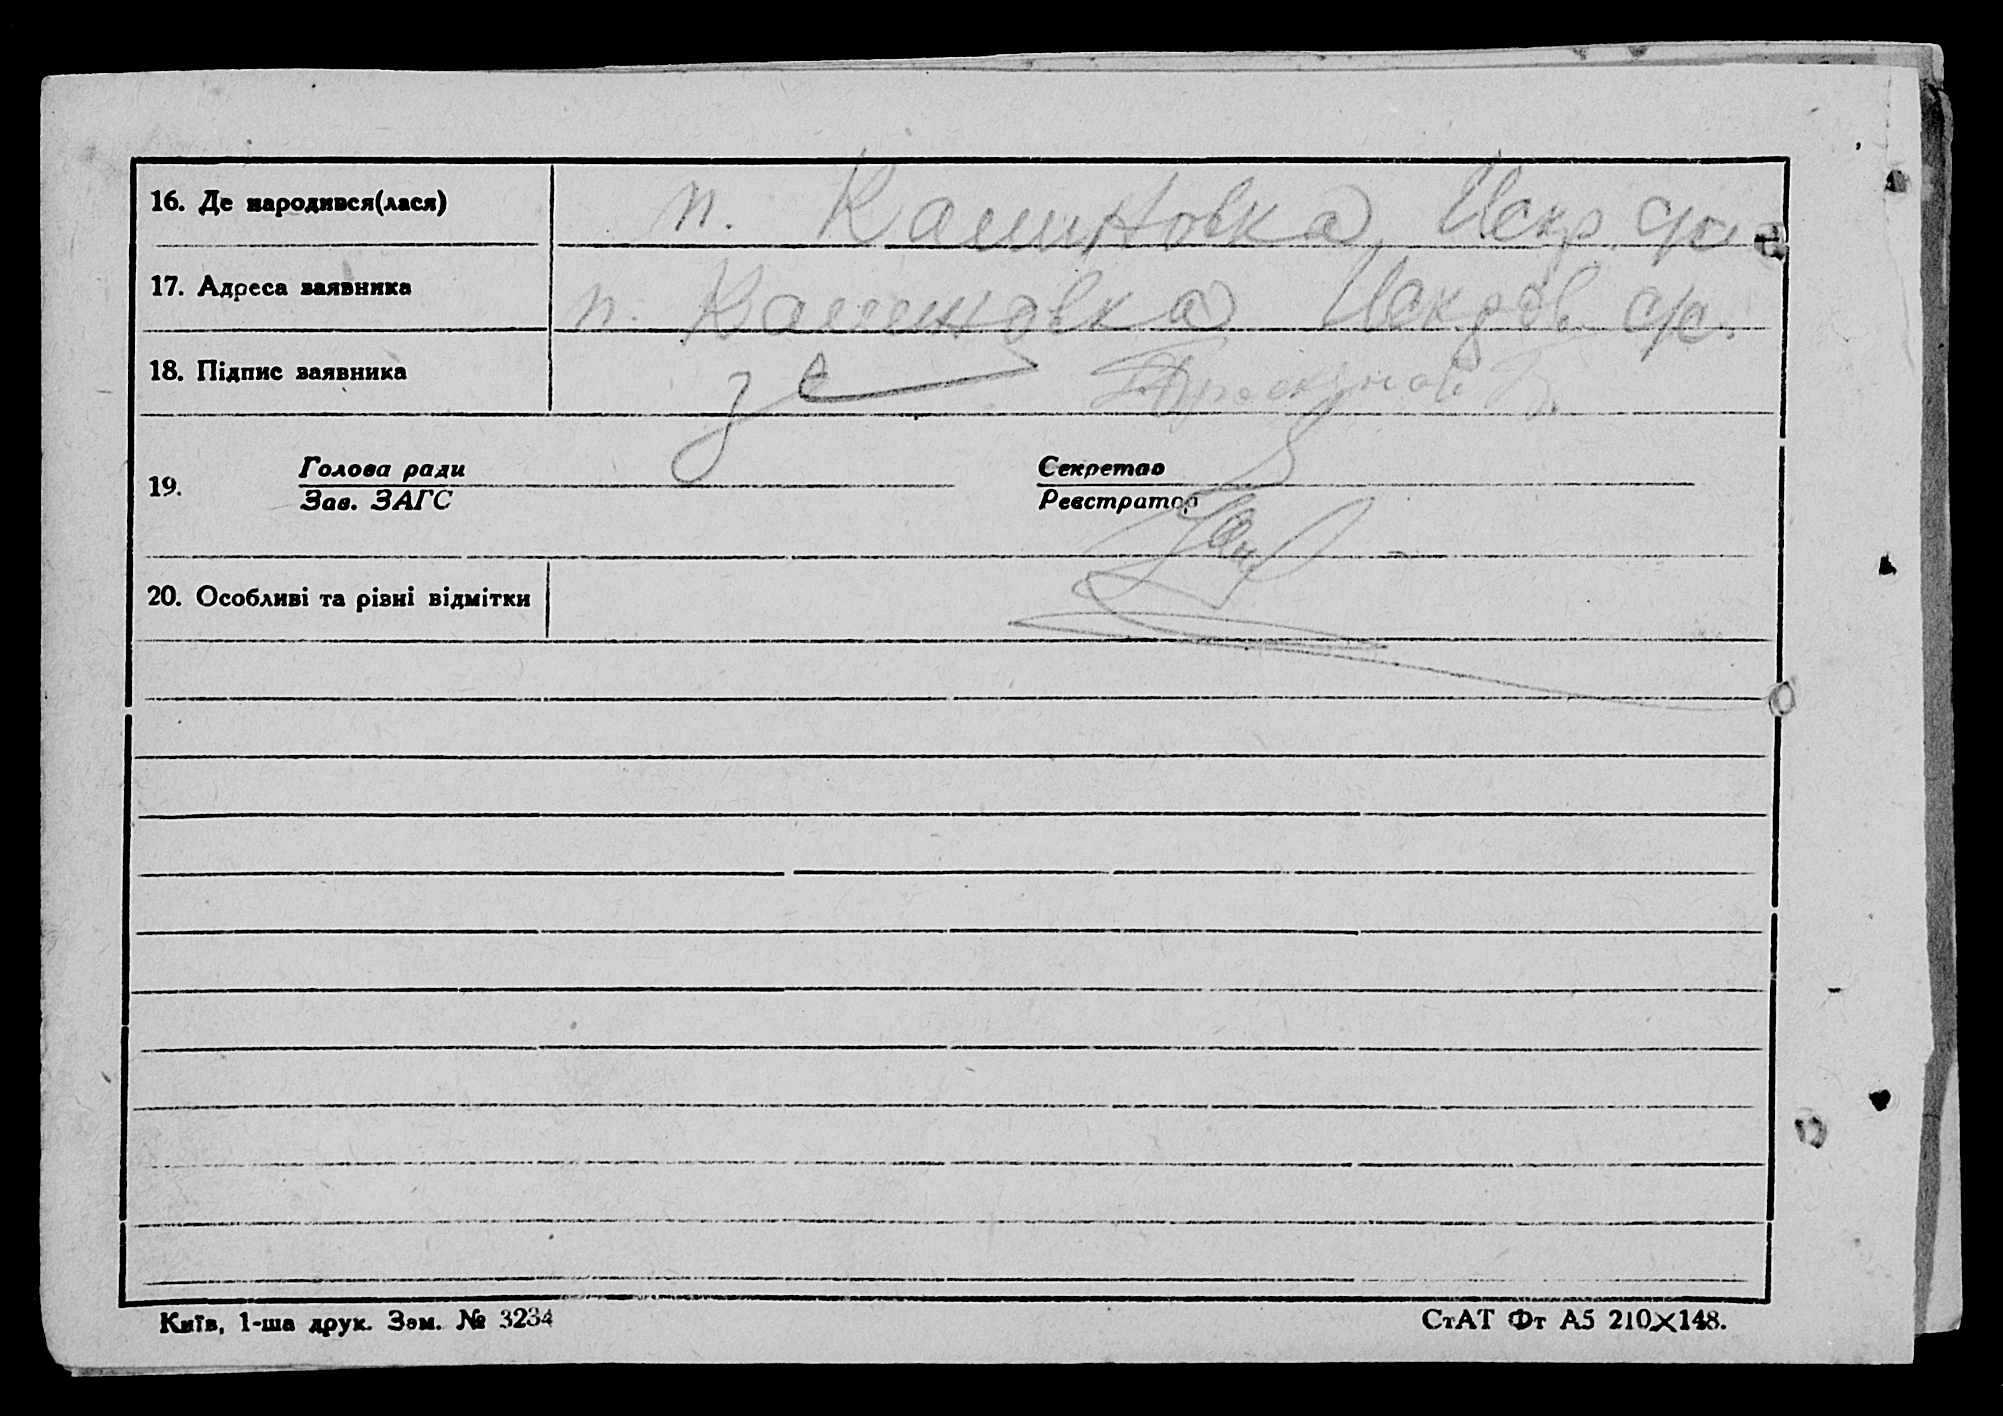 16. Де народився(лася) п. Калиновка, Искр. с/с
17. Адреса заявника п. Калиновка Искров. с/с.
18. Підпис заявника за
19. Голова ради Секретар
Зав. ЗАГС Реєстратор
20. Особливі та різні відмітки
Київ, 1-ша друк. Зам. № 3234 СтАТ Фт А5 210×148.